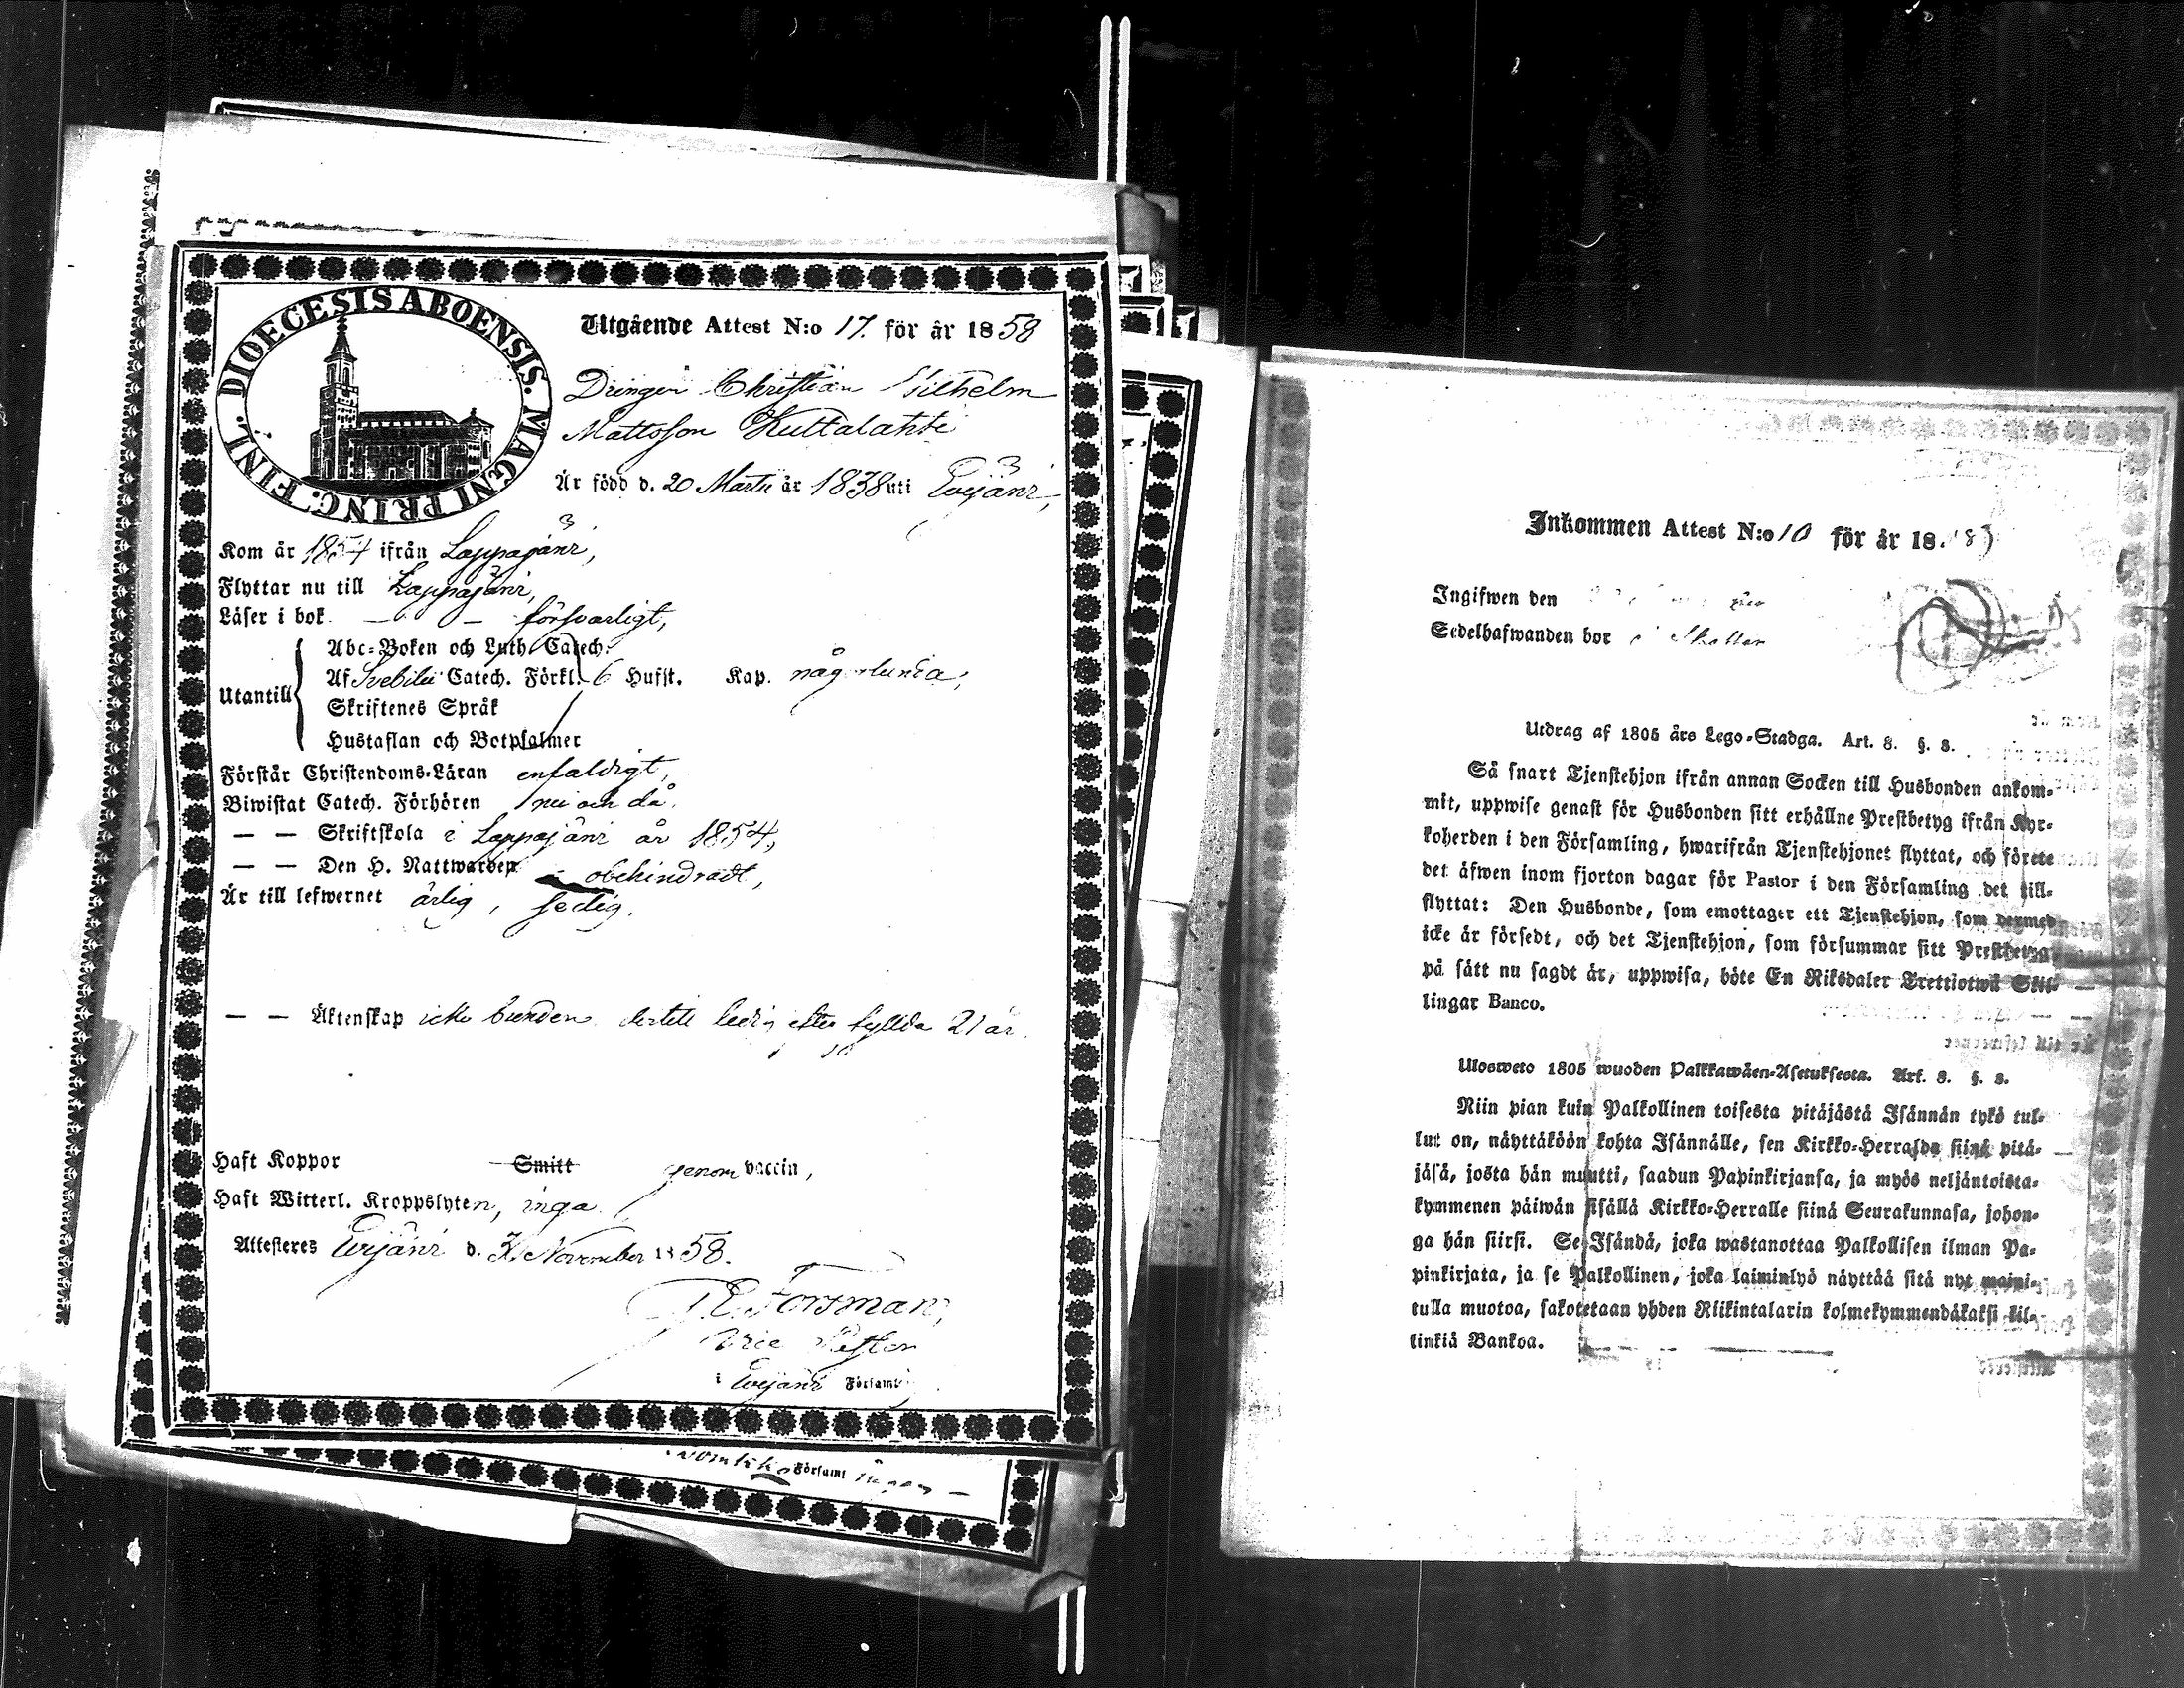 DIOECESIS ABOENSIS. MAGNI PRINC. FINL.
Utgående Attest N:o 17. för år 1858
Drängen Christian Wilhelm
Mattsson Kuttalahti
Är född d. 20 Martii år 1838 uti Evijärvi,
Kom år 1854 ifrån Lappajärvi,
Flyttar nu till Lappajärvi,
Läser i bok — — försvarligt,
Utantill
Abc-Boken och Luth. Catech.
Af Svebilii Catech. Förkl. 6 Hufst. Kap. någorlunda,
Skriftenes Språk
Hustaflan och Botpsalmer
Förstår Christendoms-Läran enfaldigt,
Biwistat Catech. Förhören nu och då,
— — Skriftskola i Lappajärvi år 1854,
— — Den H. Nattwarden obehindradt,
Är till lefwernet ärlig, sedig.
— — Äktenskap icke bunden, dertill ledig efter fyllda 21 år.
Haft Koppor Smitt genom vaccin,
Haft Witterl. Kroppslyten, inga.
Attesteras Evijärvi d. November 1858.
Forsman,
Vice Pastor
i Evijärvi Församl.
Församl
Inkommen Attest N:o 10 för år 18
Ingifwen den
Sedelhafwanden bor
Utdrag af 1805 års Lego-Stadga. Art. 8. §. 8.
Så snart Tjenstehjon ifrån annan Socken till Husbonden ankom-
mit, uppwise genast för Husbonden sitt erhållne Prestbetyg ifrån Kyr-
koherden i den Församling, hwarifrån Tjenstehjonet flyttat, och förete
det äfwen inom fjorton dagar för Pastor i den Församling det till-
flyttat: Den Husbonde, som emottager ett Tjenstehjon, som dermed
icke är försedt, och det Tjenstehjon, som försummar sitt Prestbetyg
på sätt nu sagdt är, uppwisa, böte En Riksdaler Trettiotwå Skil-
lingar Banco.
Ulosweto 1805 wuoden Palkkawäen-Asetuksesta. Art. 8. §. 8.
Niin pian kuin Palkollinen toisesta pitäjästä Isännän tykö tul-
lut on, näyttäköön kohta Isännälle, sen Kirkko-Herralda siinä pitä-
jäsä, josta hän muutti, saadun Papinkirjansa, ja myös neljäntoista-
kymmenen päiwän sisällä Kirkko-Herralle siinä Seurakunnasa, johon-
ga hän siirsi. Se Isändä, joka wastanottaa Palkollisen ilman Pa-
pinkirjata, ja se Palkollinen, joka laiminlyö näyttää sitä nyt maini-
tulla muotoa, sakotetaan yhden Riikintalarin kolmekymmendäkaksi kil-
linkiä Bankoa.